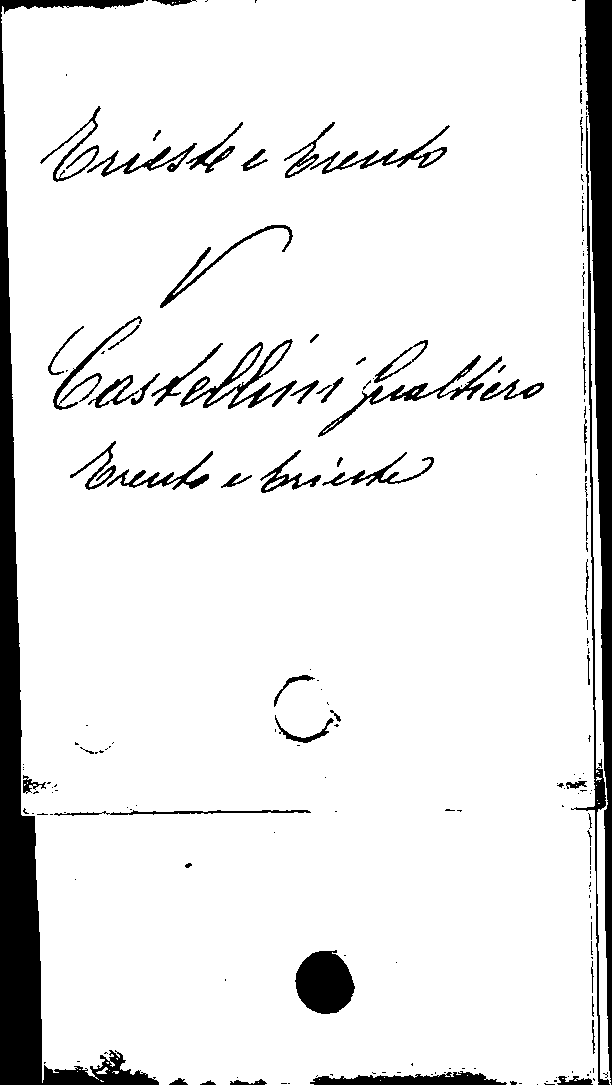 Trieste e Trento
V
Castellini Gualtiero
Trento e Trieste